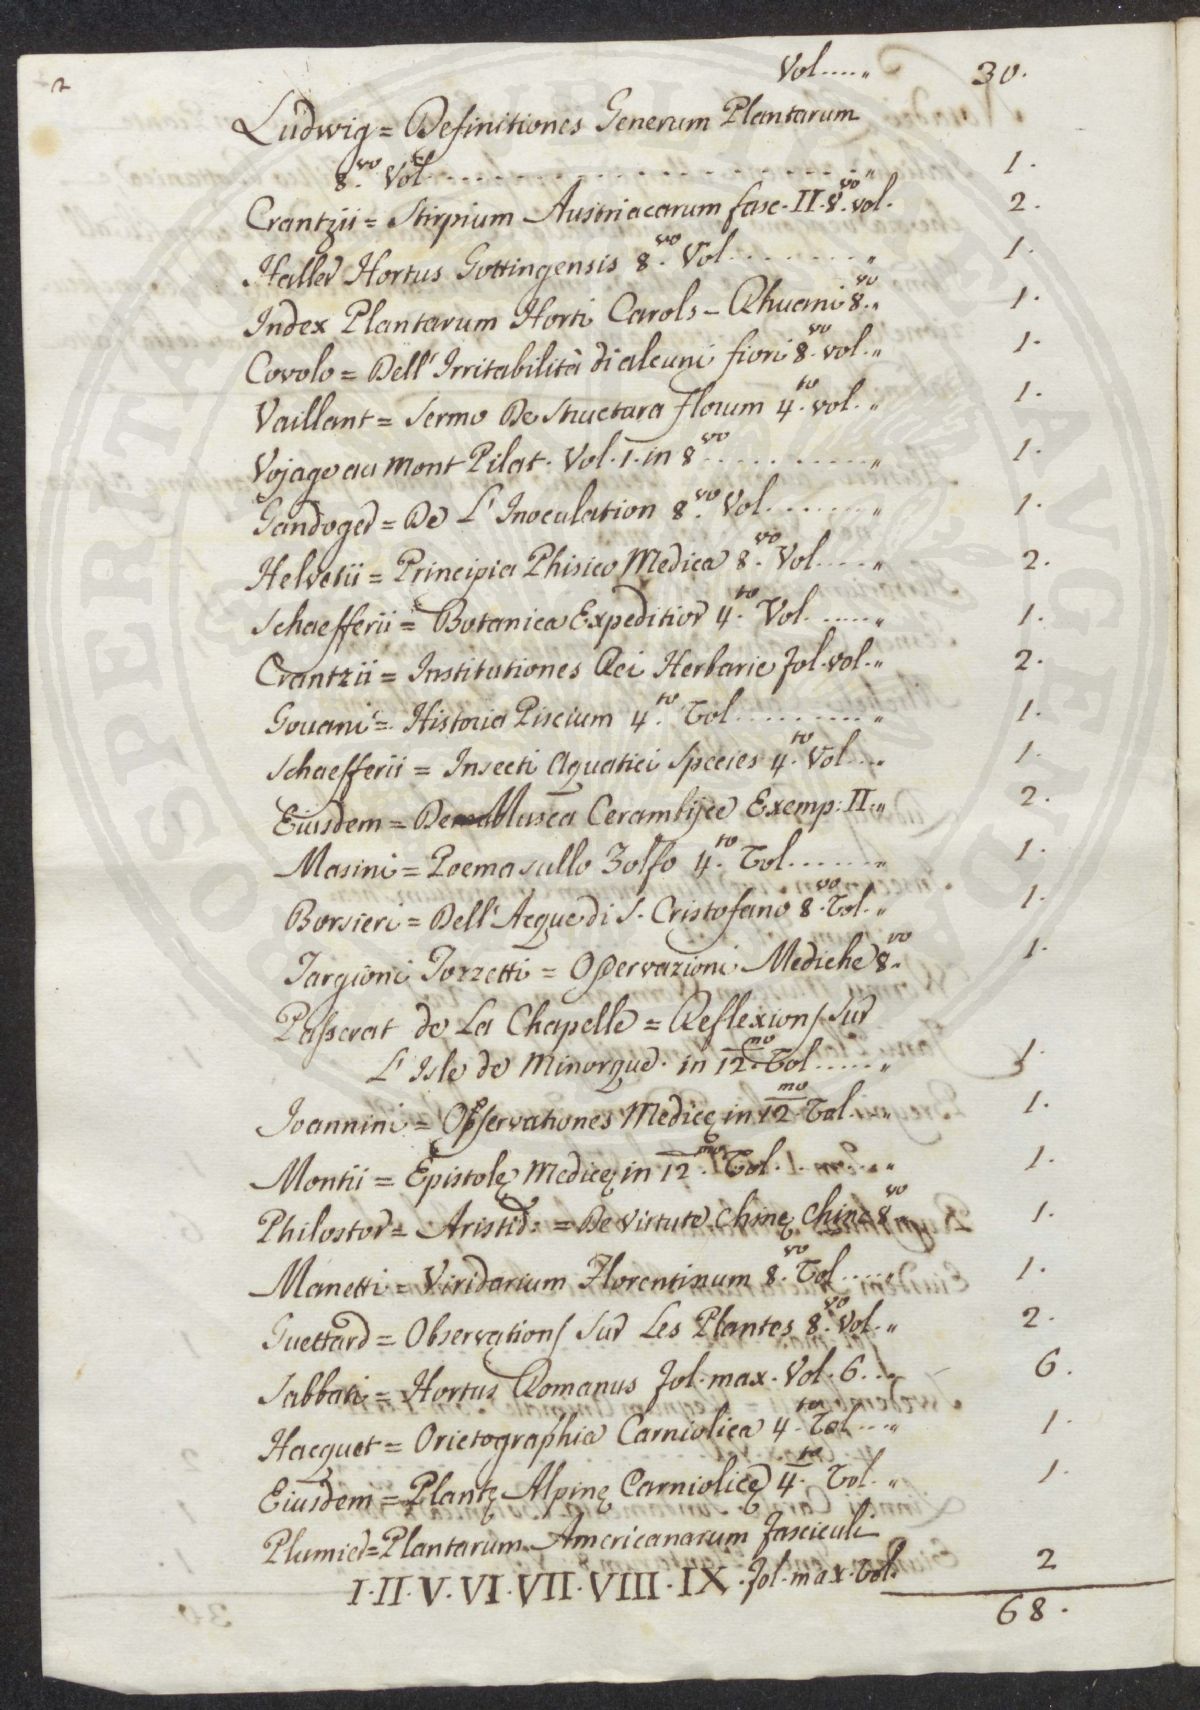 2
Vol....„ 30.
Ludwig = Definitiones Generum Plantarum
8.vo Vol. . . . . . . . . . . . . . . . . . . „ 1.
Crantzii = Stirpium Austriacarum fasc. II. 8.vo vol. 2.
Haller Hortus Gottingensis 8.vo Vol. . . . . . . . „ 1.
Index Plantarum Horti Carols - Rhuani 8.vo „ 1.
Covolo = Dell' Irritabilità di alcuni fiori 8.vo vol. „ 1.
Vaillant = Sermo De Structura Florum 4.to vol. „ 1.
Vojage au Mont Pilat. Vol. 1. in 8vo . . . . . . . . . „ 1.
Gandoger = De L' Inoculation 8.vo Vol. . . . . . . „ 1.
Helvetii = Principia Phisico Medica 8.vo Vol. . . . „ 2.
Schaefferii = Botanica Expeditior 4.to Vol. . . . . . „ 1.
Crantzii = Institutiones Rei Herbarie fol. vol. „ 2.
Gouani = Historia Piscium 4.to Vol. . . . . . . . . . „ 1.
Schaefferii = Insecti Aquatici Species 4.to Vol. . . „ 1.
Eiusdem = De Musca Cerambijce Exemp: II. „ 2.
Masini = Poema sullo Zolfo 4.to Vol. . . . . . . „ 1.
Borsieri = Dell' Acque di S. Cristofano 8.vo Vol. „ 1.
Targioni Tozzetti = Osservazioni Mediche 8.vo „ 1.
Passerat de La Chapelle = Reflexions Sur
L' Isle de Minorque. in 12.mo Vol. . . . . . „ 1.
Joannini = Observationes Medicę in 12mo Vol. . „ 1.
Montii = Epistolę Medicę in 12.mo Vol. . . . . . . „ 1.
Philostor = Aristid: = De Virtute Chinę Chinę 8.vo „ 1.
Manetti = Viridarium Florentinum 8.vo Vol. . . . „ 1.
Guettard = Observations Sur Les Plantes 8.vo Vol. „ 2.
Sabbati = Hortus Romanus fol. max. Vol. 6. . „ 6.
Hacquet = Orictographia Carniolica 4.to Vol. . . „ 1.
Eiusdem = Plantę Alpinę Carniolicę 4.to Vol. . „ 1.
Plumier = Plantarum Americanarum fasciculi
I. II. V. VI. VII. VIII. IX. fol. max. Vol. 2
68.